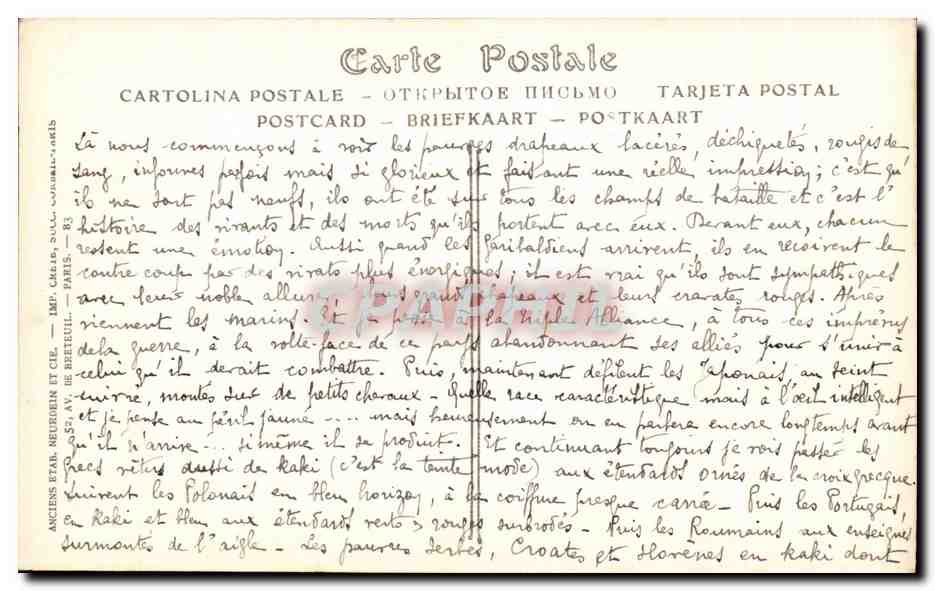 Carte Postale
CARTOLINA POSTALE – ОТКРЫТОЕ ПИСЬМО TARJETA POSTAL
POSTCARD – BRIEFKAART – POSTKAART
Là nous commençons à voir les pauvres drapeaux lacérés, déchiquetés, rougis de
sang, informes parfois mais si glorieux et faisant une réelle impression ; c'est qu'
il ne sont pas neufs, ils ont été sur tous les champs de bataille et c'est l'
histoire des vivants et des morts qu'ils portent avec eux. Devant eux, chacun
ressent une émotion. Aussi quand les Garibaldiens arrivent, ils en reçoivent le
contre coup par des vivats plus énergiques ; il est vrai qu'ils sont sympathiques
avec leur noble allure, leurs grands chapeaux et leurs cravates rouges. Après
viennent les marins. Et je pense à la Triple Alliance, à tous ces imprévus
de la guerre, à la volte-face de ce pays abandonnant ses alliés pour s'unir à
celui qu'il devait combattre. Puis, maintenant défilent les Japonais au teint
cuivré, montés sur de petits chevaux - Quelle race caractéristique mais à l'œil intelligent
et je pense au péril jaune ... mais heureusement on en parlera encore longtemps avant
qu'il n'arrive ... si même il se produit. Et continuant toujours je vois passer les
Grecs vêtus aussi de kaki (c'est la teinte mode) aux étendards ornés de la croix grecque.
Suivent les Polonais en bleu horizon, à la coiffure presque carrée - Puis les Portugais,
en kaki et bleu aux étendards verts & rouges surbrodés - Puis les Roumains aux enseignes
surmontés de l'aigle - Les pauvres Serbes, Croates et Slovènes en kaki dont
ANCIENS ETAB. NEURDEIN ET CIE. — IMP. CRÉTÉ, SUCC. CORBEIL-PARIS
52, AV. DE BRETEUIL. — PARIS. — 83
CPAPHIL